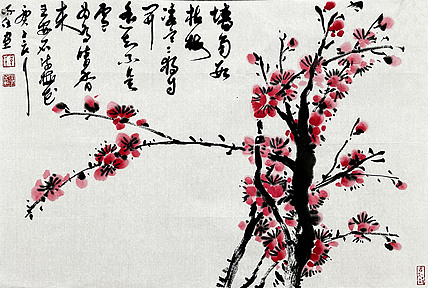 墙角数
枝梅
凌寒独自
开
遥知不是
雪
为有暗香
来
王安石诗梅花